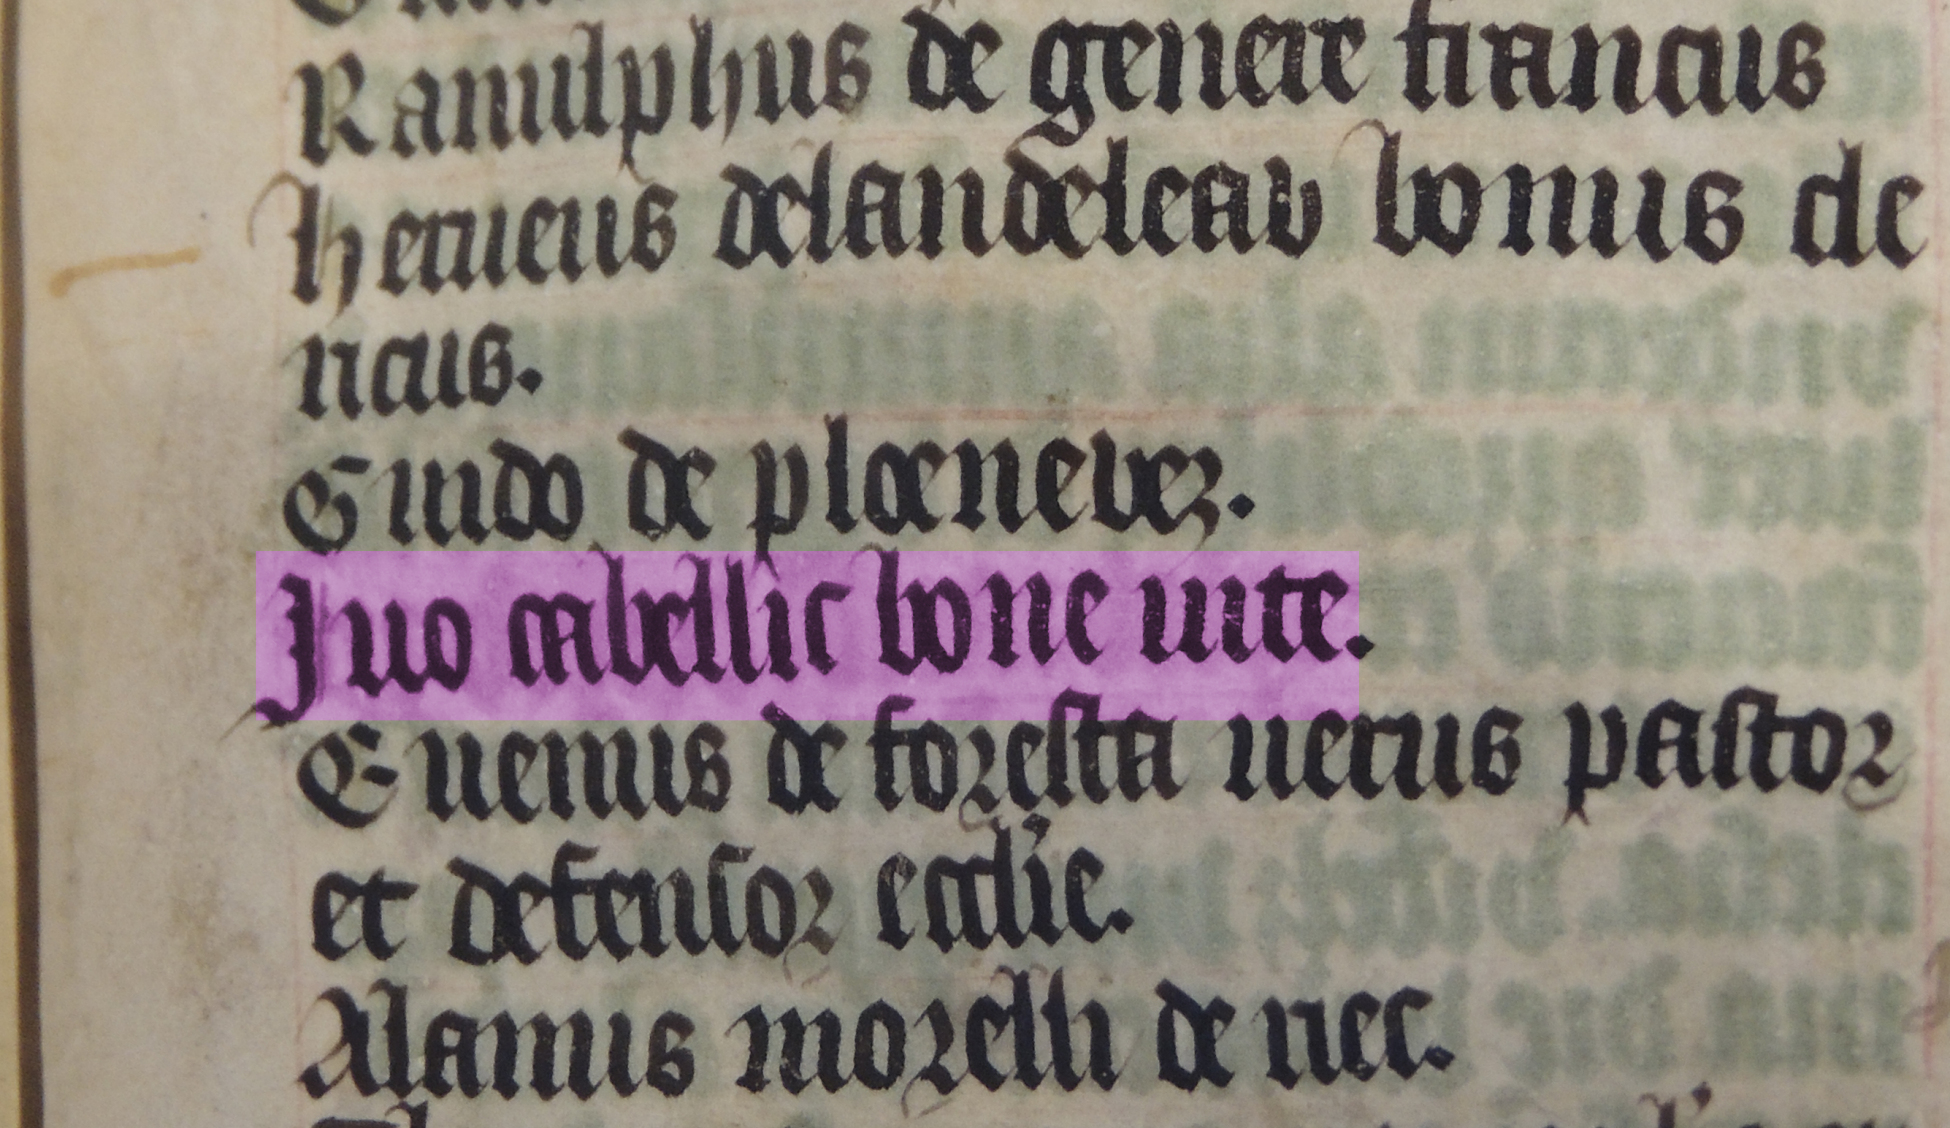 Ranulphus de genere francus
herueus delandeleau bonus cle
ricus.
Guido de ploenevez.
Iuo cabellic bone uite.
Euenus de foresta uerus pastor
et defensor ecclie.
Alanus morelli de nec.